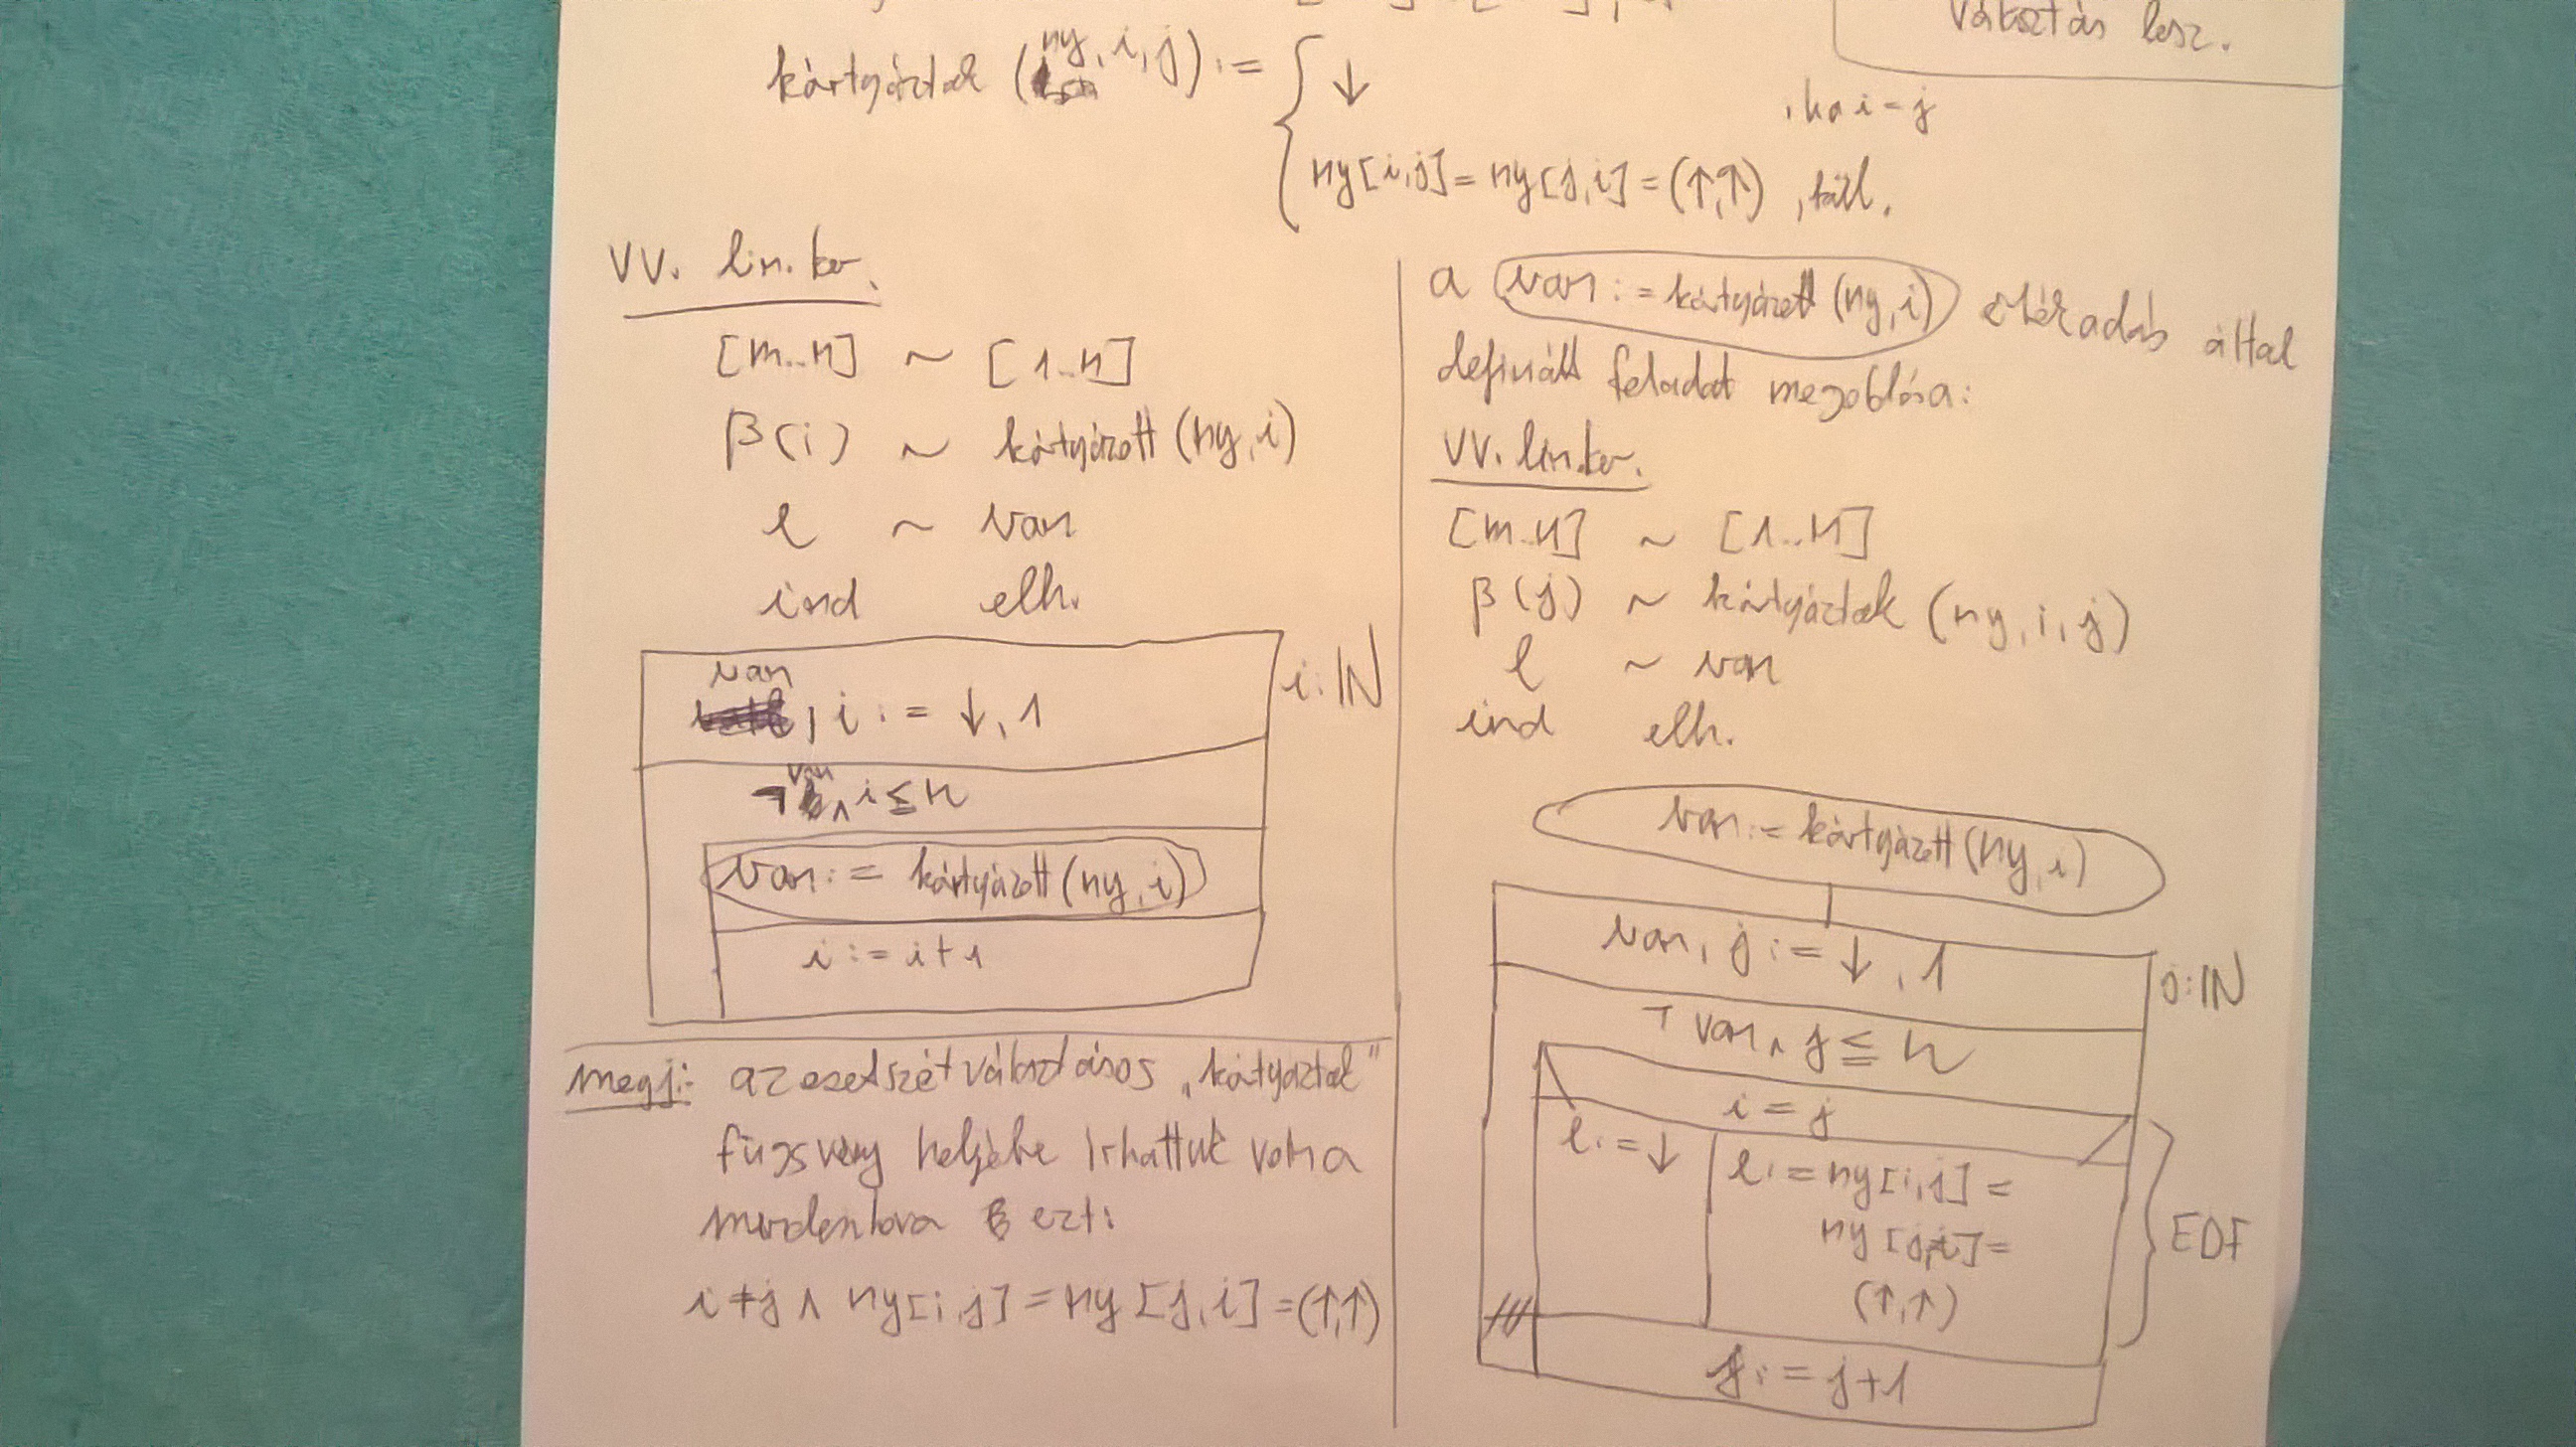 választás lesz.
kártyáztak (ny, i, j) := { ↓ , ha i = j
ny[i,j] = ny[j,i] = (↑,↑) , kül.
VV. lin. ker.
[m..n] ~ [1..n]
β(i) ~ kártyázott (ny, i)
l ~ van
ind elh.
van, i := ↓, 1
i: ℕ
¬ van ∧ i ≤ n
van := kártyázott (ny, i)
i := i + 1
megj: az esetszétválasztásos „kártyáztak"
függvény helyébe írhattuk volna
mindenhova ezt:
i ≠ j ∧ ny[i,j] = ny[j,i] = (↑,↑)
a van := kártyázott (ny, i) értékadás által
definiált feladat megoldása:
VV. lin. ker.
[m..n] ~ [1..n]
β(j) ~ kártyáztak (ny, i, j)
l ~ van
ind elh.
van := kártyázott (ny, i)
van, j := ↓, 1
j: ℕ
¬ van ∧ j ≤ n
i = j
l := ↓
l := ny[i,j] =
ny[j,i] =
(↑,↑)
EDF
j := j+1